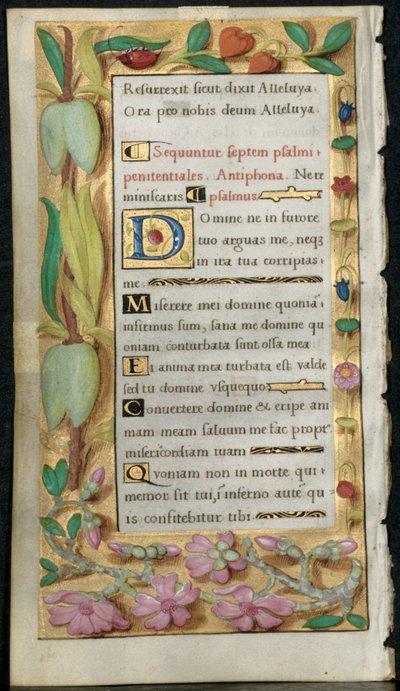 Resurrexit sicut dixit Alleluya.
Ora pro nobis deum Alleluya.
Sequuntur septem psalmi
penitentiales. Antiphona. Nere
miniscaris psalmus
Domine ne in furore
tuo arguas me, neqꝫ
in ira tua corripias
me.
Miserere mei domine quoniā
infirmus sum, sana me domine qu
oniam conturbata sunt ossa mea
Et anima mea turbata est valde
sed tu domine vsquequo
Conuertere domine & eripe ani
mam meam saluum me fac propt
misericordiam tuam
Quoniam non in morte qui
memor sit tui, ī inferno autē qu
is confitebitur tibi.